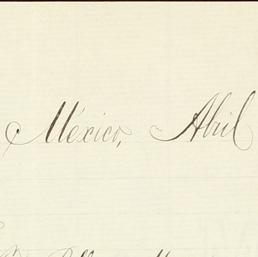 México, Abril